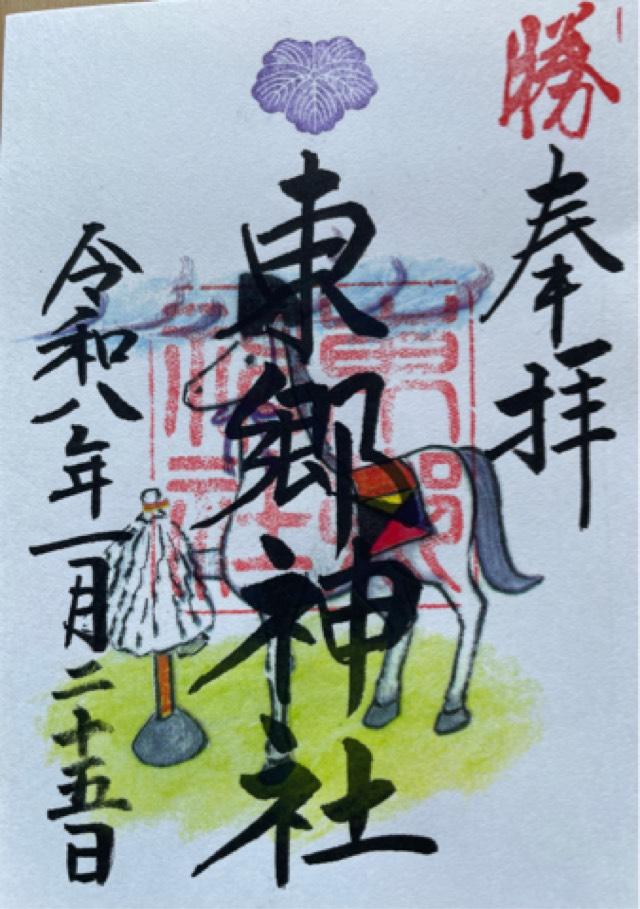 勝
奉拝
東郷神社
東郷神社
令和八年一月二十五日